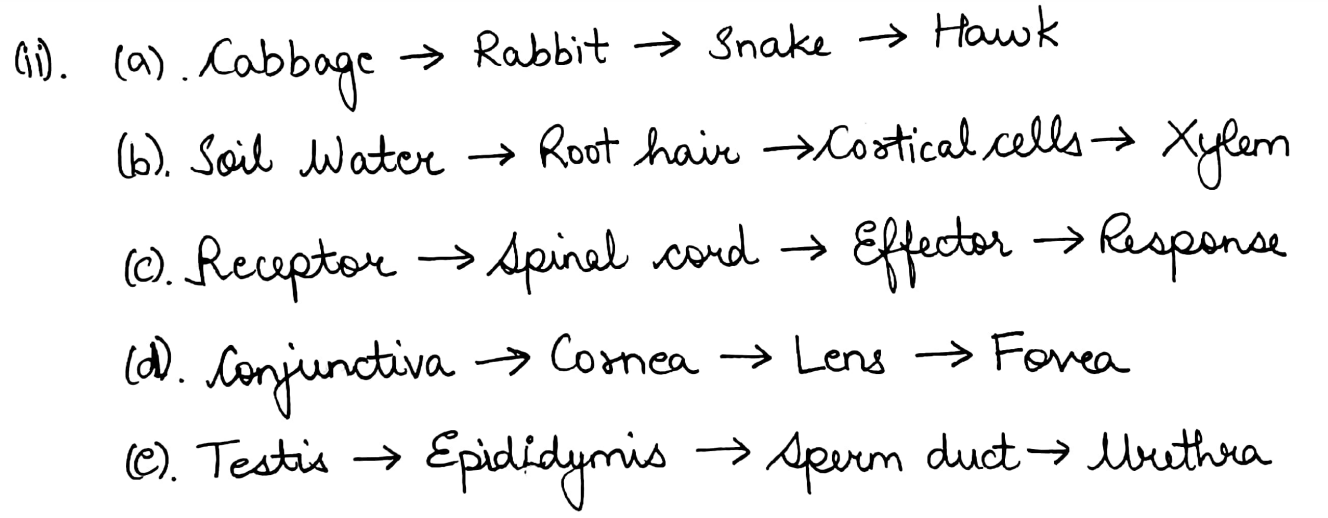 (ii). (a). Cabbage → Rabbit → Snake → Hawk
(b). Soil Water → Root hair → Cortical cells → Xylem
(c). Receptor → Spinal cord → Effector → Response
(d). Conjunctiva → Cornea → Lens → Fovea
(e). Testis → Epididymis → Sperm duct → Urethra